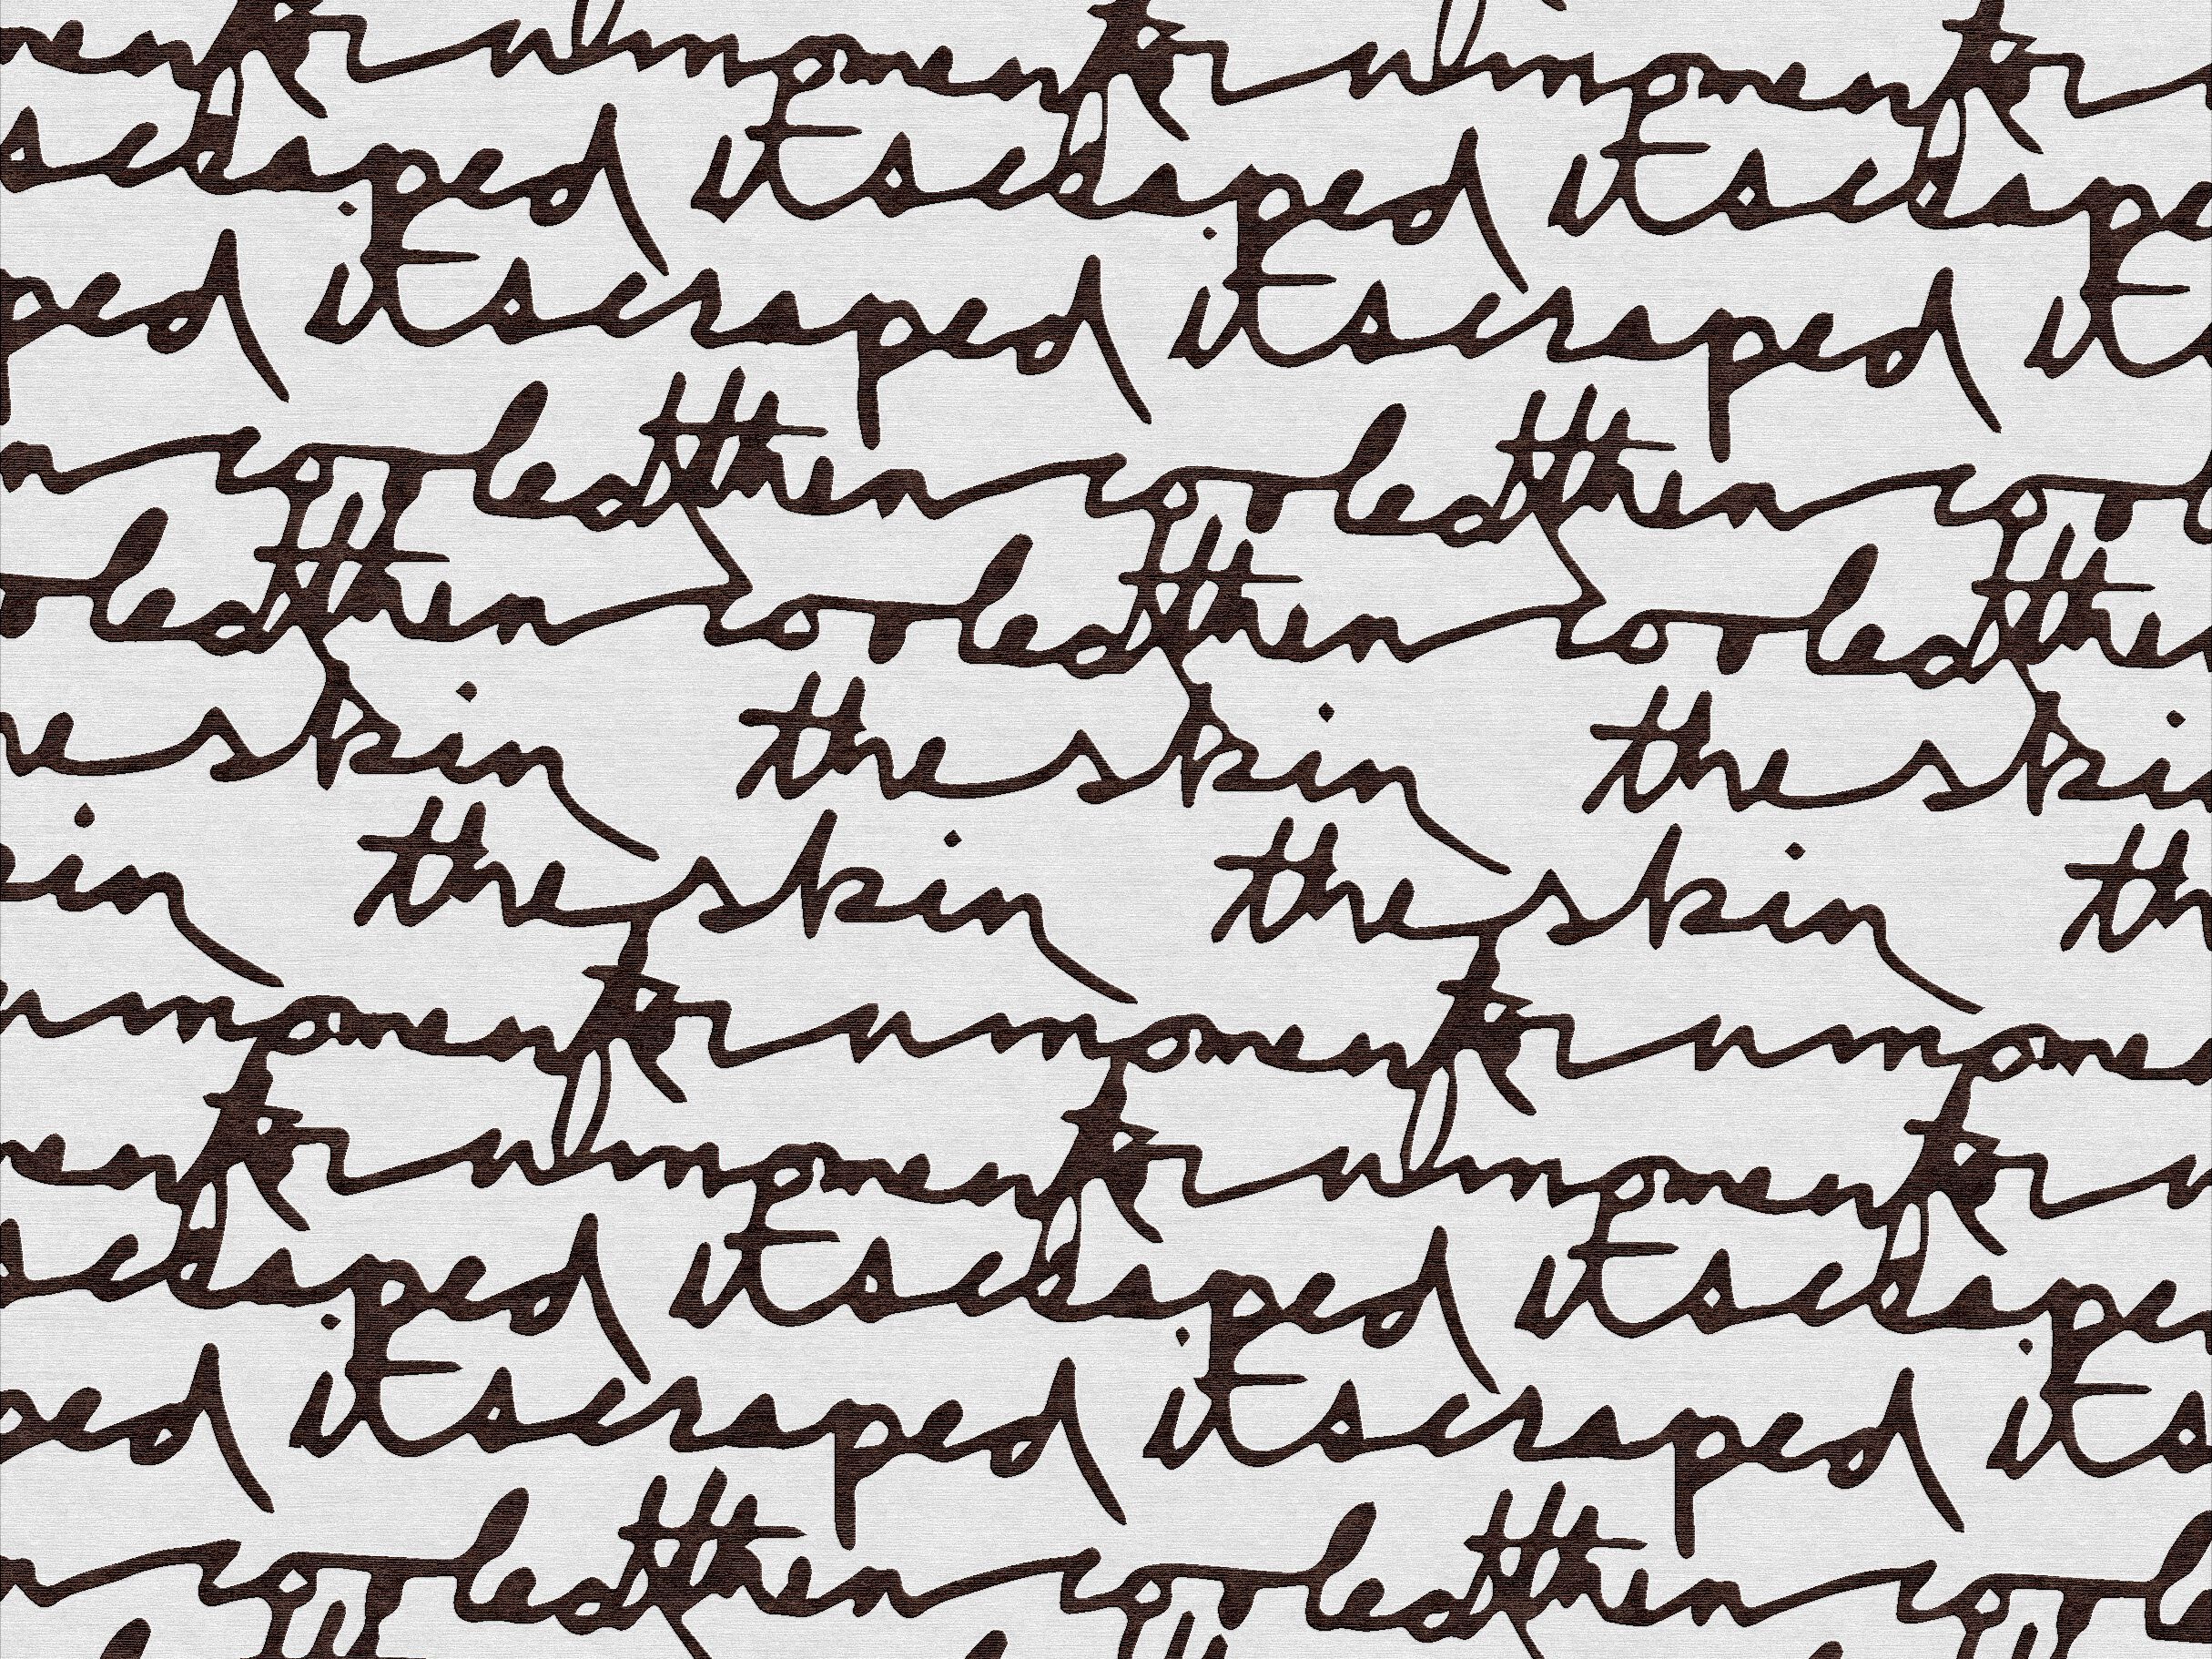 ment for a moment for a moment for
scraped it scraped it scrape
ped it scraped it scraped it
n cooled then cooled then cool
oled then cooled then cooled then
he skin the skin the ski
in the skin the skin th
a moment for a moment for a mome
ment for a moment for a moment for a
scraped it scraped it scrape
ped it scraped it scraped it s
n cooled then cooled then cool